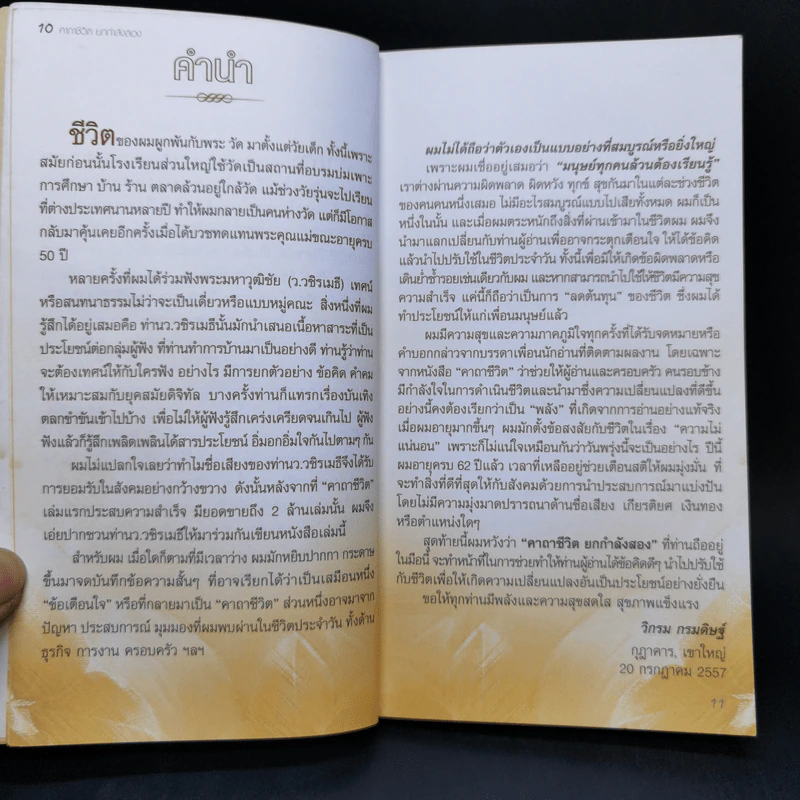 10 คาถาชีวิต ยกกำลังสอง
คำนำ
ชีวิตของผมผูกพันกับพระ วัด มาตั้งแต่วัยเด็ก ทั้งนี้เพราะ
สมัยก่อนนั้นโรงเรียนส่วนใหญ่ใช้วัดเป็นสถานที่อบรมบ่มเพาะ
การศึกษา บ้าน ร้าน ตลาดล้วนอยู่ใกล้วัด แม้ช่วงวัยรุ่นจะไปเรียน
ที่ต่างประเทศนานหลายปี ทำให้ผมกลายเป็นคนห่างวัด แต่ก็มีโอกาส
กลับมาคุ้นเคยอีกครั้งเมื่อได้บวชทดแทนพระคุณแม่ขณะอายุครบ
50 ปี
หลายครั้งที่ผมได้ร่วมฟังพระมหาวุฒิชัย (ว.วชิรเมธี) เทศน์
หรือสนทนาธรรมไม่ว่าจะเป็นเดี่ยวหรือแบบหมู่คณะ สิ่งหนึ่งที่ผม
รู้สึกได้อยู่เสมอคือ ท่านว.วชิรเมธีนั้นมักนำเสนอเนื้อหาสาระที่เป็น
ประโยชน์ต่อกลุ่มผู้ฟัง ที่ท่านทำการบ้านมาเป็นอย่างดี ท่านรู้ว่าท่าน
จะต้องเทศน์ให้กับใครฟัง อย่างไร มีการยกตัวอย่าง ข้อคิด คำคม
ให้เหมาะสมกับยุคสมัยดิจิทัล บางครั้งท่านก็แทรกเรื่องบันเทิง
ตลกขำขันเข้าไปบ้าง เพื่อไม่ให้ผู้ฟังรู้สึกเคร่งเครียดจนเกินไป ผู้ฟัง
ฟังแล้วก็รู้สึกเพลิดเพลินได้สารประโยชน์ อิ่มอกอิ่มใจกันไปตามๆ กัน
ผมไม่แปลกใจเลยว่าทำไมชื่อเสียงของท่านว.วชิรเมธีจึงได้รับ
การยอมรับในสังคมอย่างกว้างขวาง ดังนั้นหลังจากที่ "คาถาชีวิต"
เล่มแรกประสบความสำเร็จ มียอดขายถึง 2 ล้านเล่มนั้น ผมจึง
เอ่ยปากชวนท่านว.วชิรเมธีให้มาร่วมกันเขียนหนังสือเล่มนี้
สำหรับผม เมื่อใดก็ตามที่มีเวลาว่าง ผมมักหยิบปากกา กระดาษ
ขึ้นมาจดบันทึกข้อความสั้นๆ ที่อาจเรียกได้ว่าเป็นเสมือนหนึ่ง
"ข้อเตือนใจ" หรือที่กลายมาเป็น "คาถาชีวิต" ส่วนหนึ่งอาจมาจาก
ปัญหา ประสบการณ์ มุมมองที่ผมพบผ่านในชีวิตประจำวัน ทั้งด้าน
ธุรกิจ การงาน ครอบครัว ฯลฯ
ผมไม่ได้ถือว่าตัวเองเป็นแบบอย่างที่สมบูรณ์หรือยิ่งใหญ่
เพราะผมเชื่ออยู่เสมอว่า "มนุษย์ทุกคนล้วนต้องเรียนรู้"
เราต่างผ่านความผิดพลาด ผิดหวัง ทุกข์ สุขกันมาในแต่ละช่วงชีวิต
ของคนคนหนึ่งเสมอ ไม่มีอะไรสมบูรณ์แบบไปเสียทั้งหมด ผมก็เป็น
หนึ่งในนั้น และเมื่อผมตระหนักถึงสิ่งที่ผ่านเข้ามาในชีวิตผม ผมจึง
นำมาแลกเปลี่ยนกับท่านผู้อ่านเพื่ออาจกระตุกเตือนใจ ให้ได้ข้อคิด
แล้วนำไปปรับใช้ในชีวิตประจำวัน ทั้งนี้เพื่อมิให้เกิดข้อผิดพลาดหรือ
เดินย่ำซ้ำรอยเช่นเดียวกับผม และหากสามารถนำไปใช้ให้ชีวิตมีความสุข
ความสำเร็จ แค่นี้ก็ถือว่าเป็นการ "ลดต้นทุน" ของชีวิต ซึ่งผมได้
ทำประโยชน์ให้แก่เพื่อนมนุษย์แล้ว
ผมมีความสุขและความภาคภูมิใจทุกครั้งที่ได้รับจดหมายหรือ
คำบอกกล่าวจากบรรดาเพื่อนนักอ่านที่ติดตามผลงาน โดยเฉพาะ
จากหนังสือ "คาถาชีวิต" ว่าช่วยให้ผู้อ่านและครอบครัว คนรอบข้าง
มีกำลังใจในการดำเนินชีวิตและนำมาซึ่งความเปลี่ยนแปลงที่ดีขึ้น
อย่างนี้คงต้องเรียกว่าเป็น "พลัง" ที่เกิดจากการอ่านอย่างแท้จริง
เมื่อผมอายุมากขึ้นๆ ผมมักตั้งข้อสงสัยกับชีวิตในเรื่อง "ความไม่
แน่นอน" เพราะก็ไม่แน่ใจเหมือนกันว่าวันพรุ่งนี้จะเป็นอย่างไร ปีนี้
ผมอายุครบ 62 ปีแล้ว เวลาที่เหลืออยู่ช่วยเตือนสติให้ผมมุ่งมั่น ที่
จะทำสิ่งที่ดีที่สุดให้กับสังคมด้วยการนำประสบการณ์มาแบ่งปัน
โดยไม่มีความมุ่งมาดปรารถนาด้านชื่อเสียง เกียรติยศ เงินทอง
หรือตำแหน่งใดๆ
สุดท้ายนี้ผมหวังว่า "คาถาชีวิต ยกกำลังสอง" ที่ท่านถืออยู่
ในมือนี้ จะทำหน้าที่ในการช่วยทำให้ท่านผู้อ่านได้ข้อคิดดีๆ นำไปปรับใช้
กับชีวิตเพื่อให้เกิดความเปลี่ยนแปลงอันเป็นประโยชน์อย่างยั่งยืน
ขอให้ทุกท่านมีพลังและความสุขสดใส สุขภาพแข็งแรง
วิกรม กรมดิษฐ์
กุฎาคาร, เขาใหญ่
20 กรกฎาคม 2557
11